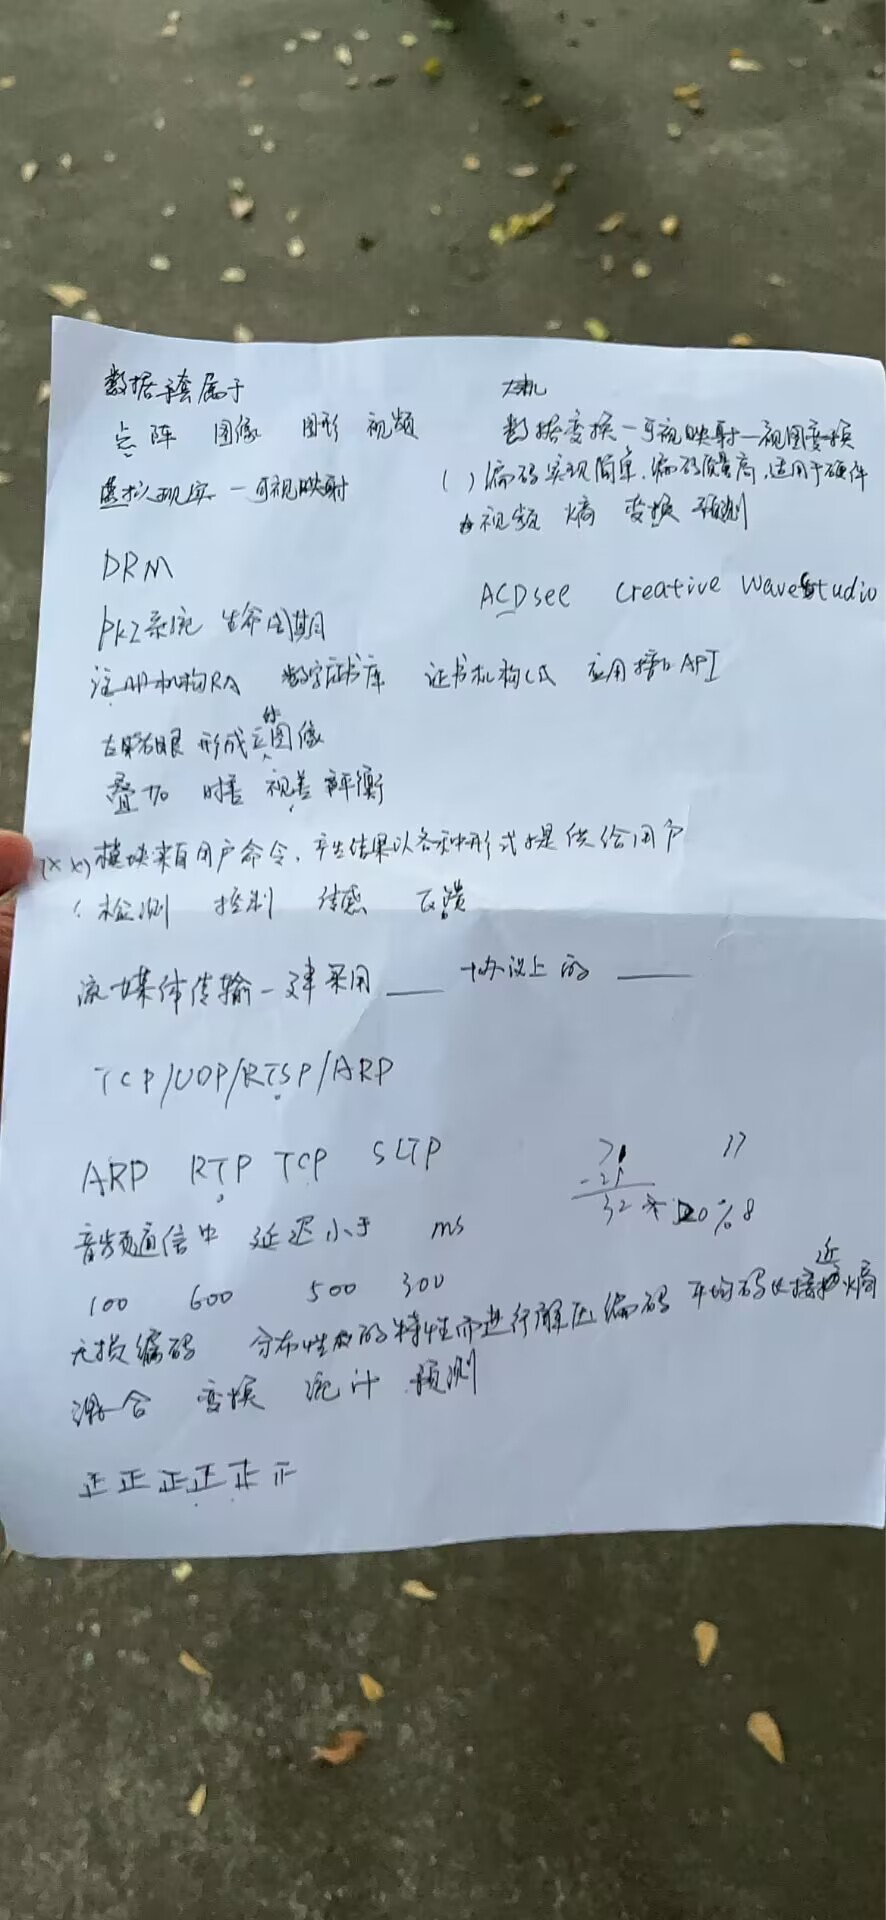 数据手套属于
点阵 图像 图形 视频
虚拟现实 — 可视映射
数据变换—可视映射—视图变换
( )编码实现简单、编码质量高、适用于硬件
视频 熵 变换 预测
DRM
ACDsee Creative WaveStudio
系统 生命周期
注册机构RA 数字证书库 证书机构CA 应用接口API
形成立体图像
叠加 时差 视差 平衡
(x x)模块来自用户命令,产生结果以各种形式提供给用户
检测 控制 传感 反馈
流媒体传输一 采用 ____ 协议上的 ____
TCP/UDP/RTSP/ARP
ARP RTP TCP
音频通信中 延迟小于 ms
100 600 500 300
无损编码 分布 的特性而进行 编码 平均码长接近熵
混合 变换 统计 预测
正正正正正正